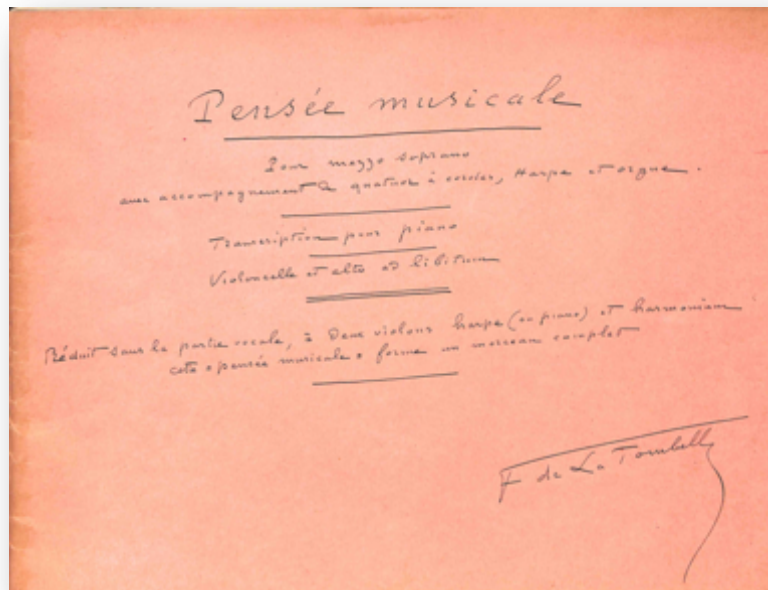 Pensée musicale
Pour mezzo soprano
avec accompagnement de quatuor à cordes, Harpe et orgue.
Transcription pour piano
Violoncelle et alto ad libitum
Réduit sans la partie vocale, à deux violons harpe (ou piano) et harmonium
cette « pensée musicale » forme un morceau complet
F de La Tombelle